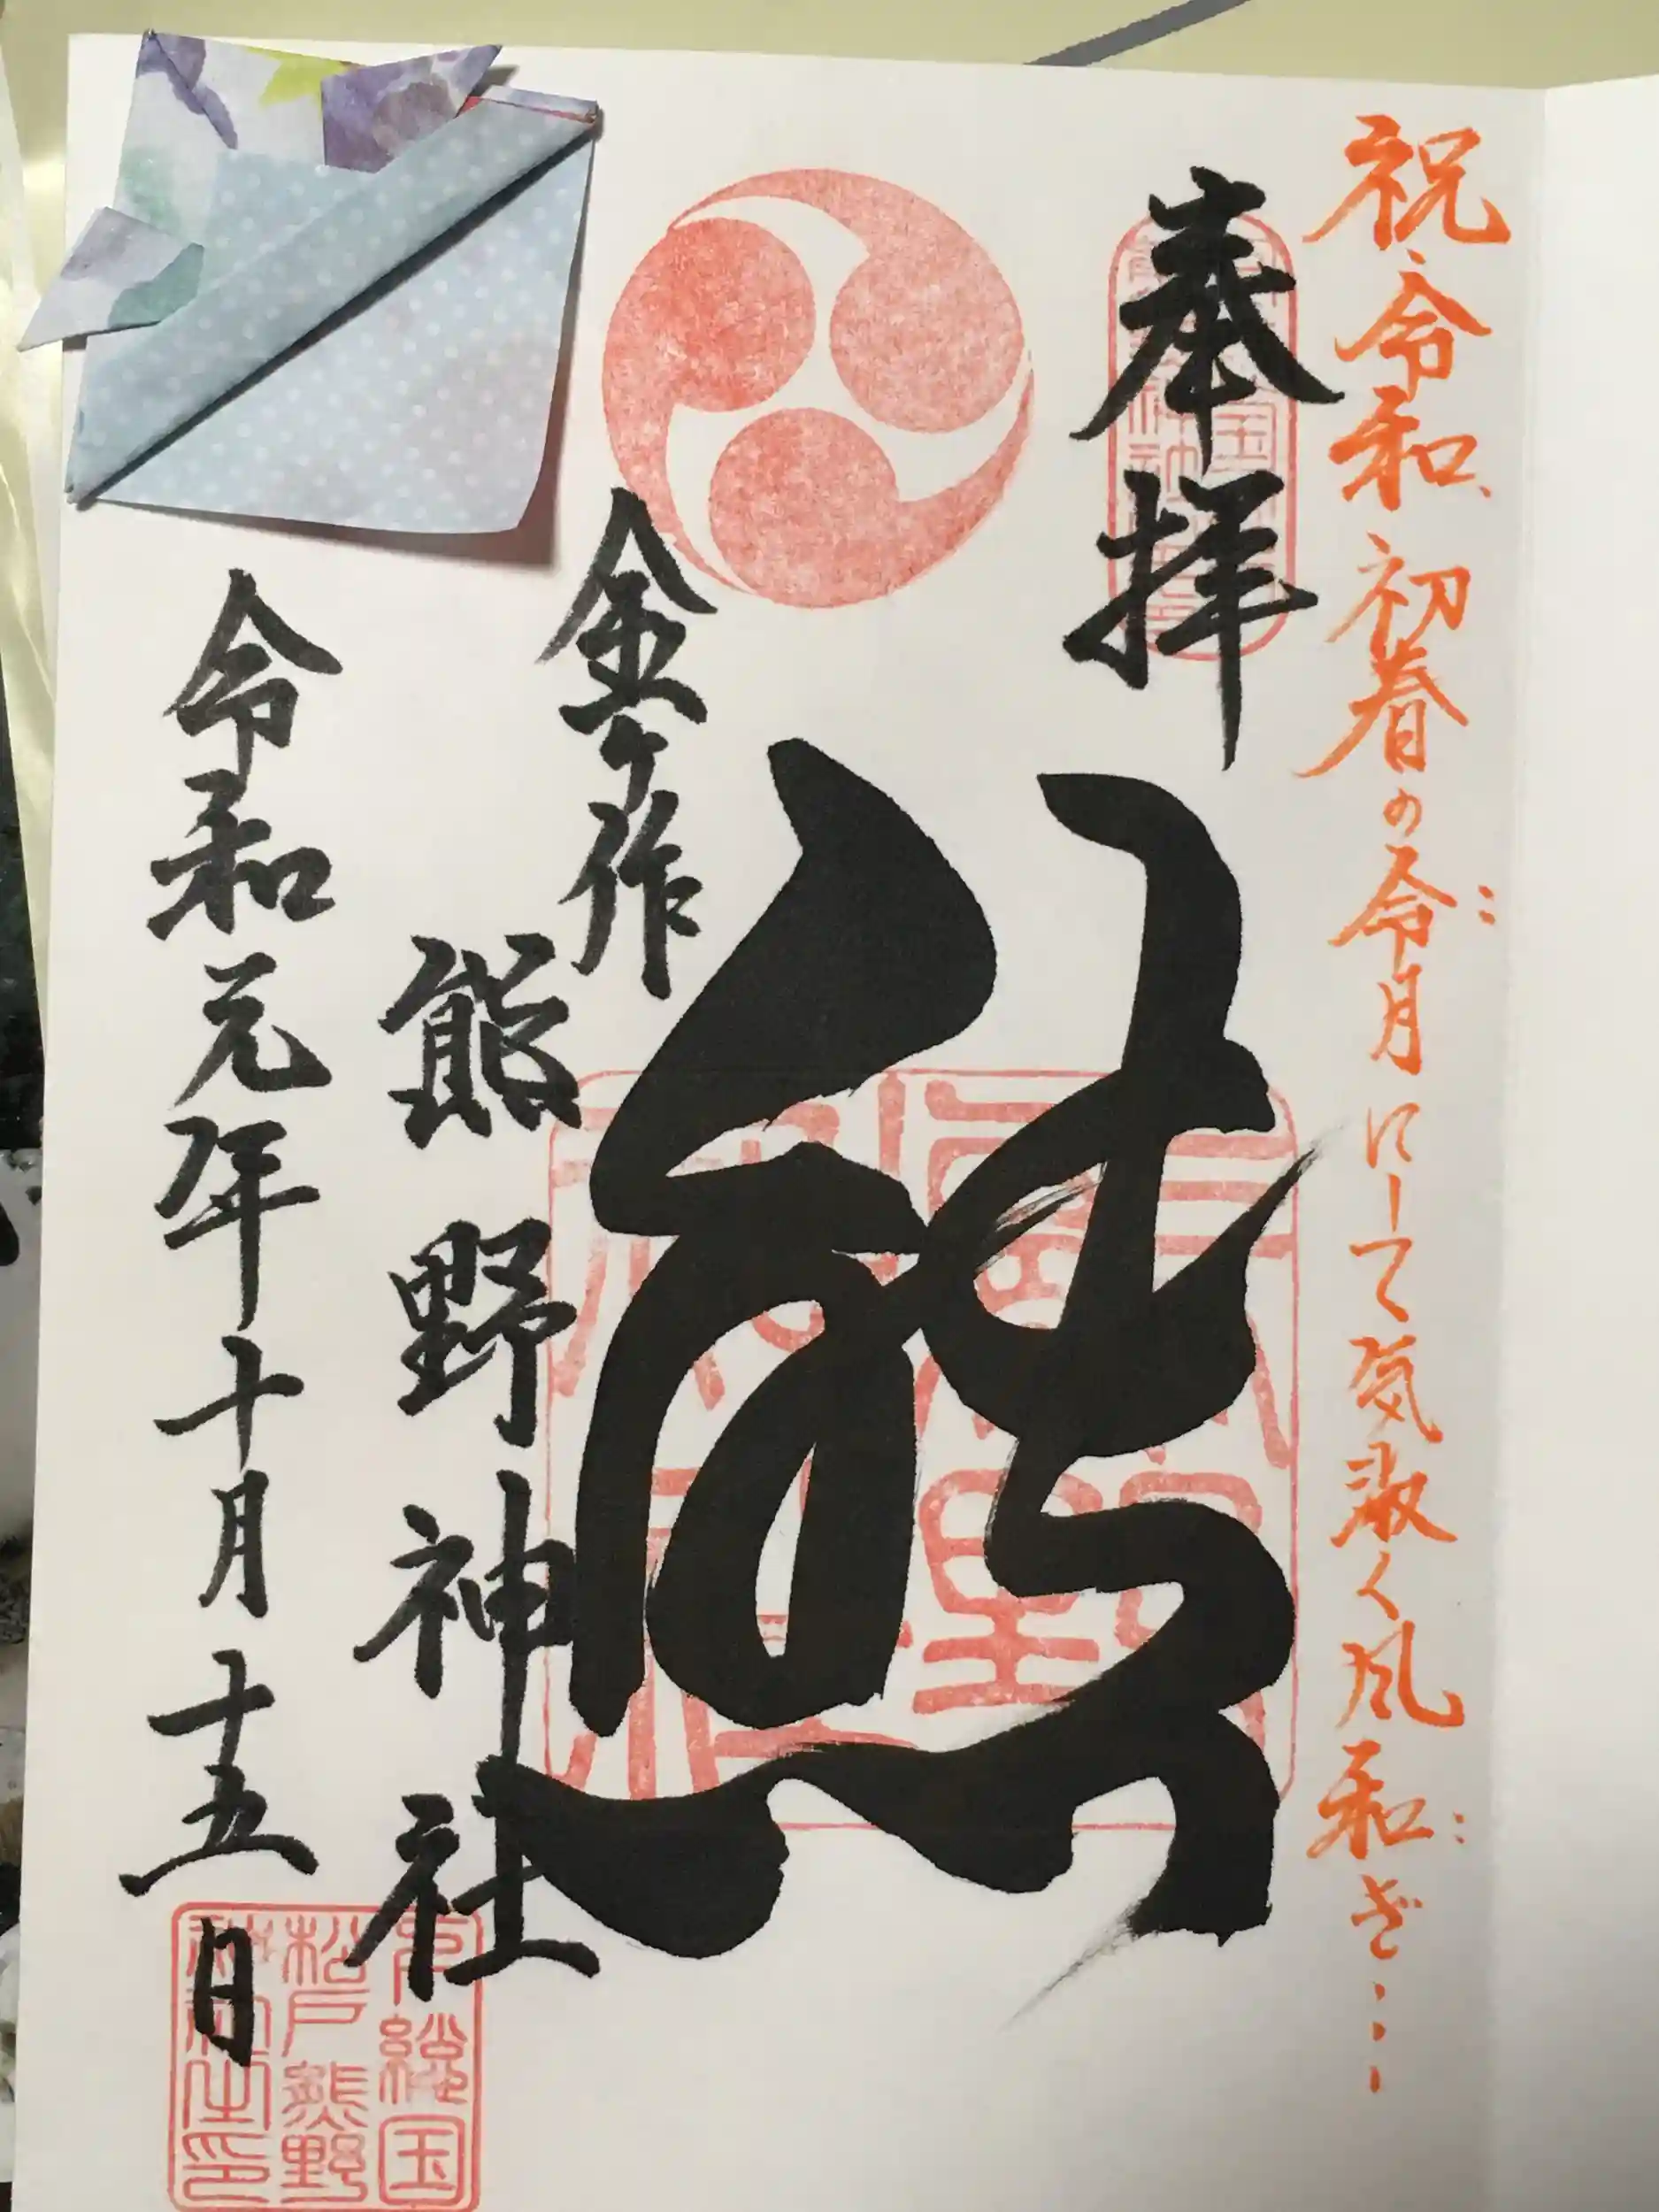 祝、令和、初春の令月にして気淑く風和ぎ・・・
奉拝
熊
金ヶ作
熊野神社
令和元年十月十五日
下総国
松戸熊野